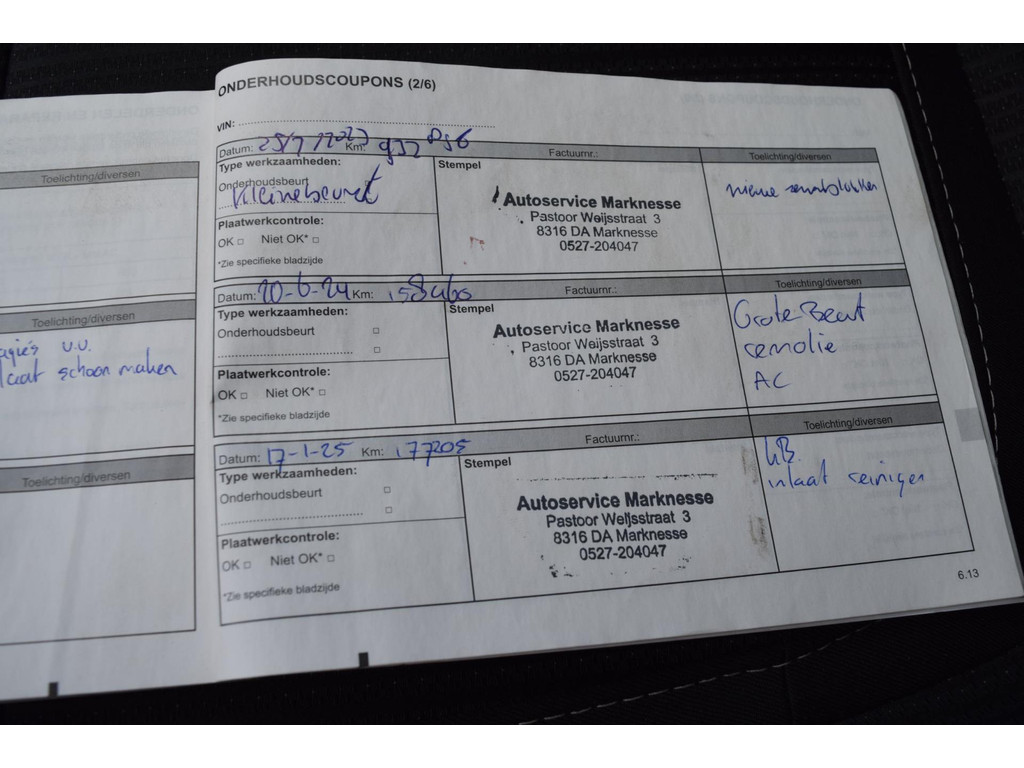 Toelichting/diversen
Toelichting/diversen
u.u.
schoon maken
Toelichting/diversen
ONDERHOUDSCOUPONS (2/6)
VIN:
Datum: 25/7/2023 Km:
Factuurnr.:
Toelichting/diversen
Type werkzaamheden:
Onderhoudsbeurt
Kleinebeurt
Stempel
Autoservice Marknesse
Pastoor Weijsstraat 3
8316 DA Marknesse
0527-204047
nieuwe remblokken
Plaatwerkcontrole:
OK □ Niet OK* □
*Zie specifieke bladzijde
Datum: 20-6-24 Km:
Factuurnr.:
Toelichting/diversen
Type werkzaamheden:
Onderhoudsbeurt □
□
Stempel
Autoservice Marknesse
Pastoor Weijsstraat 3
8316 DA Marknesse
0527-204047
Grote Beurt
remolie
AC
Plaatwerkcontrole:
OK □ Niet OK* □
*Zie specifieke bladzijde
Datum: 17-1-25 Km: 177205
Factuurnr.:
Toelichting/diversen
Type werkzaamheden:
Onderhoudsbeurt □
□
Stempel
Autoservice Marknesse
Pastoor Weijsstraat 3
8316 DA Marknesse
0527-204047
inlaat reiniger
Plaatwerkcontrole:
OK □ Niet OK* □
*Zie specifieke bladzijde
6.13